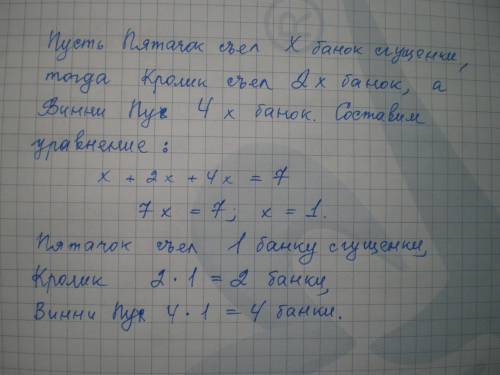 Пусть Пятачок съел X банок сгущенки,
тогда Кролик съел 2x банок, а
Винни Пух 4x банок. Составим
уравнение:
x + 2x + 4x = 7
7x = 7; x = 1.
Пятачок съел 1 банку сгущенки,
Кролик 2·1 = 2 банки,
Винни Пух 4·1 = 4 банки.